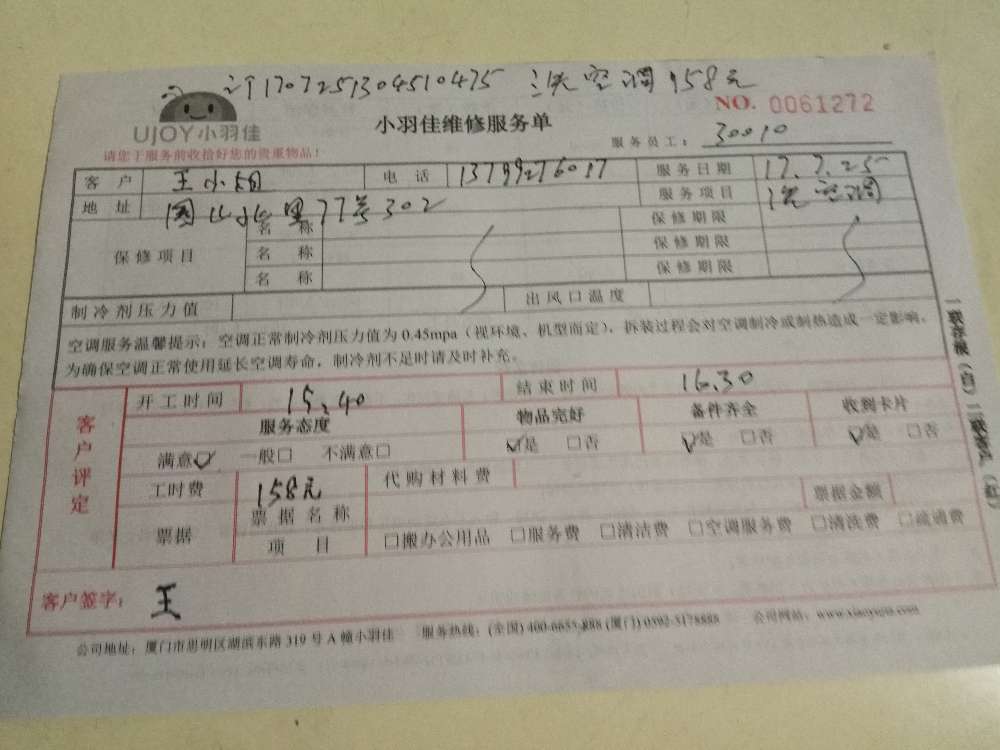 订1707251304510475 洗空调158元
UJOY小羽佳
小羽佳维修服务单
NO. 0061272
请您于服务前收拾好您的贵重物品!
服务员工: 30010
客户 王小姐 电话 13799276017 服务日期 17.7.25
地址 园山北里77号302 服务项目 洗空调
保修项目 名称 保修期限
名称 保修期限
名称 保修期限
制冷剂压力值 出风口温度
空调服务温馨提示:空调正常制冷剂压力值为0.45mpa(视环境、机型而定),拆装过程会对空调制冷或制热造成一定影响,
为确保空调正常使用延长空调寿命,制冷剂不足时请及时补充。
一联存根(白)二联客户(红)
客户评定
开工时间 15.40 结束时间 16.30
服务态度 物品完好 备件齐全 收到卡片
满意☑ 一般□ 不满意□ ☑是 □否 ☑是 □否 ☑是 □否
工时费 158元 代购材料费
票据 票据名称 票据金额
项目 □搬办公用品 □服务费 □清洁费 □空调服务费 □清洗费 □疏通费
客户签字: 王
公司地址:厦门市思明区湖滨东路319号A幢小羽佳 服务热线:(全国)400-6655-888 (厦门)0592-5178888 公司网站:www.xiaoyujia.com